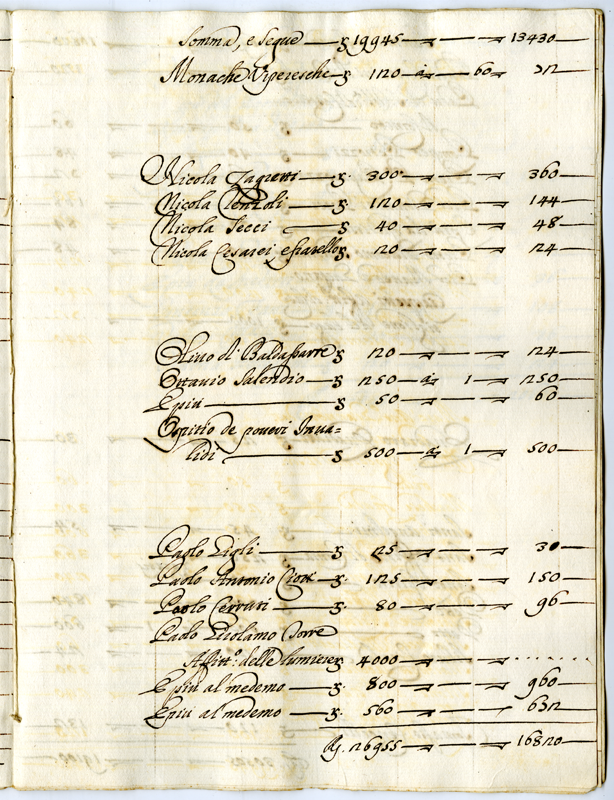 Somma, e segue — ∇ 19945 — 13430 —
Monache Viperesche ∇ 120 — a — 60 — 72
Nicola Zagretti — ∇ 300 — 360 —
Nicola — ∇ 120 — 144 —
Nicola Secci — ∇ 40 — 48 —
Nicola Cesarei, e fratello ∇ 20 — 24 —
Olivo di Baldassarre ∇ 20 — 24 —
Ottavio Salendio — ∇ 250 — a — 1 — 250 —
E più — ∇ 50 — 60 —
Ospitio de poueri Inua=
lidi — ∇ 500 — a — 1 — 500 —
Paolo Ligli — ∇ 25 — 30 —
Paolo Antonio — ∇ 125 — 150 —
Paolo Cerruti — ∇ 80 — 96 —
Paolo Girolamo Torre
Affitt.º delle lumiere ∇ 4000 — . . . . . .
E più al medemo — ∇ 800 — 960 —
E più al medemo — ∇ 560 — 672 —
∇ 26955 — 16820 —